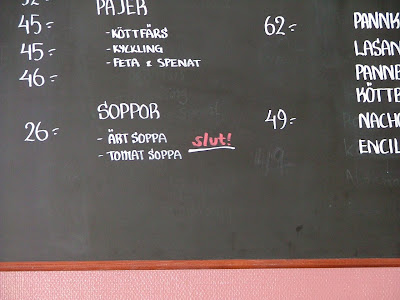 45:-
45:-
46-
26:-
PAJER
- KÖTTFÄRS
- KYCKLING
- FETA & SPENAT
SOPPOR
- ÄRT SOPPA slut!
- TOMAT SOPPA
62:-
49:-
PANNK
LASAN
PANNB
KÖTTB
NACHO
ENCIL